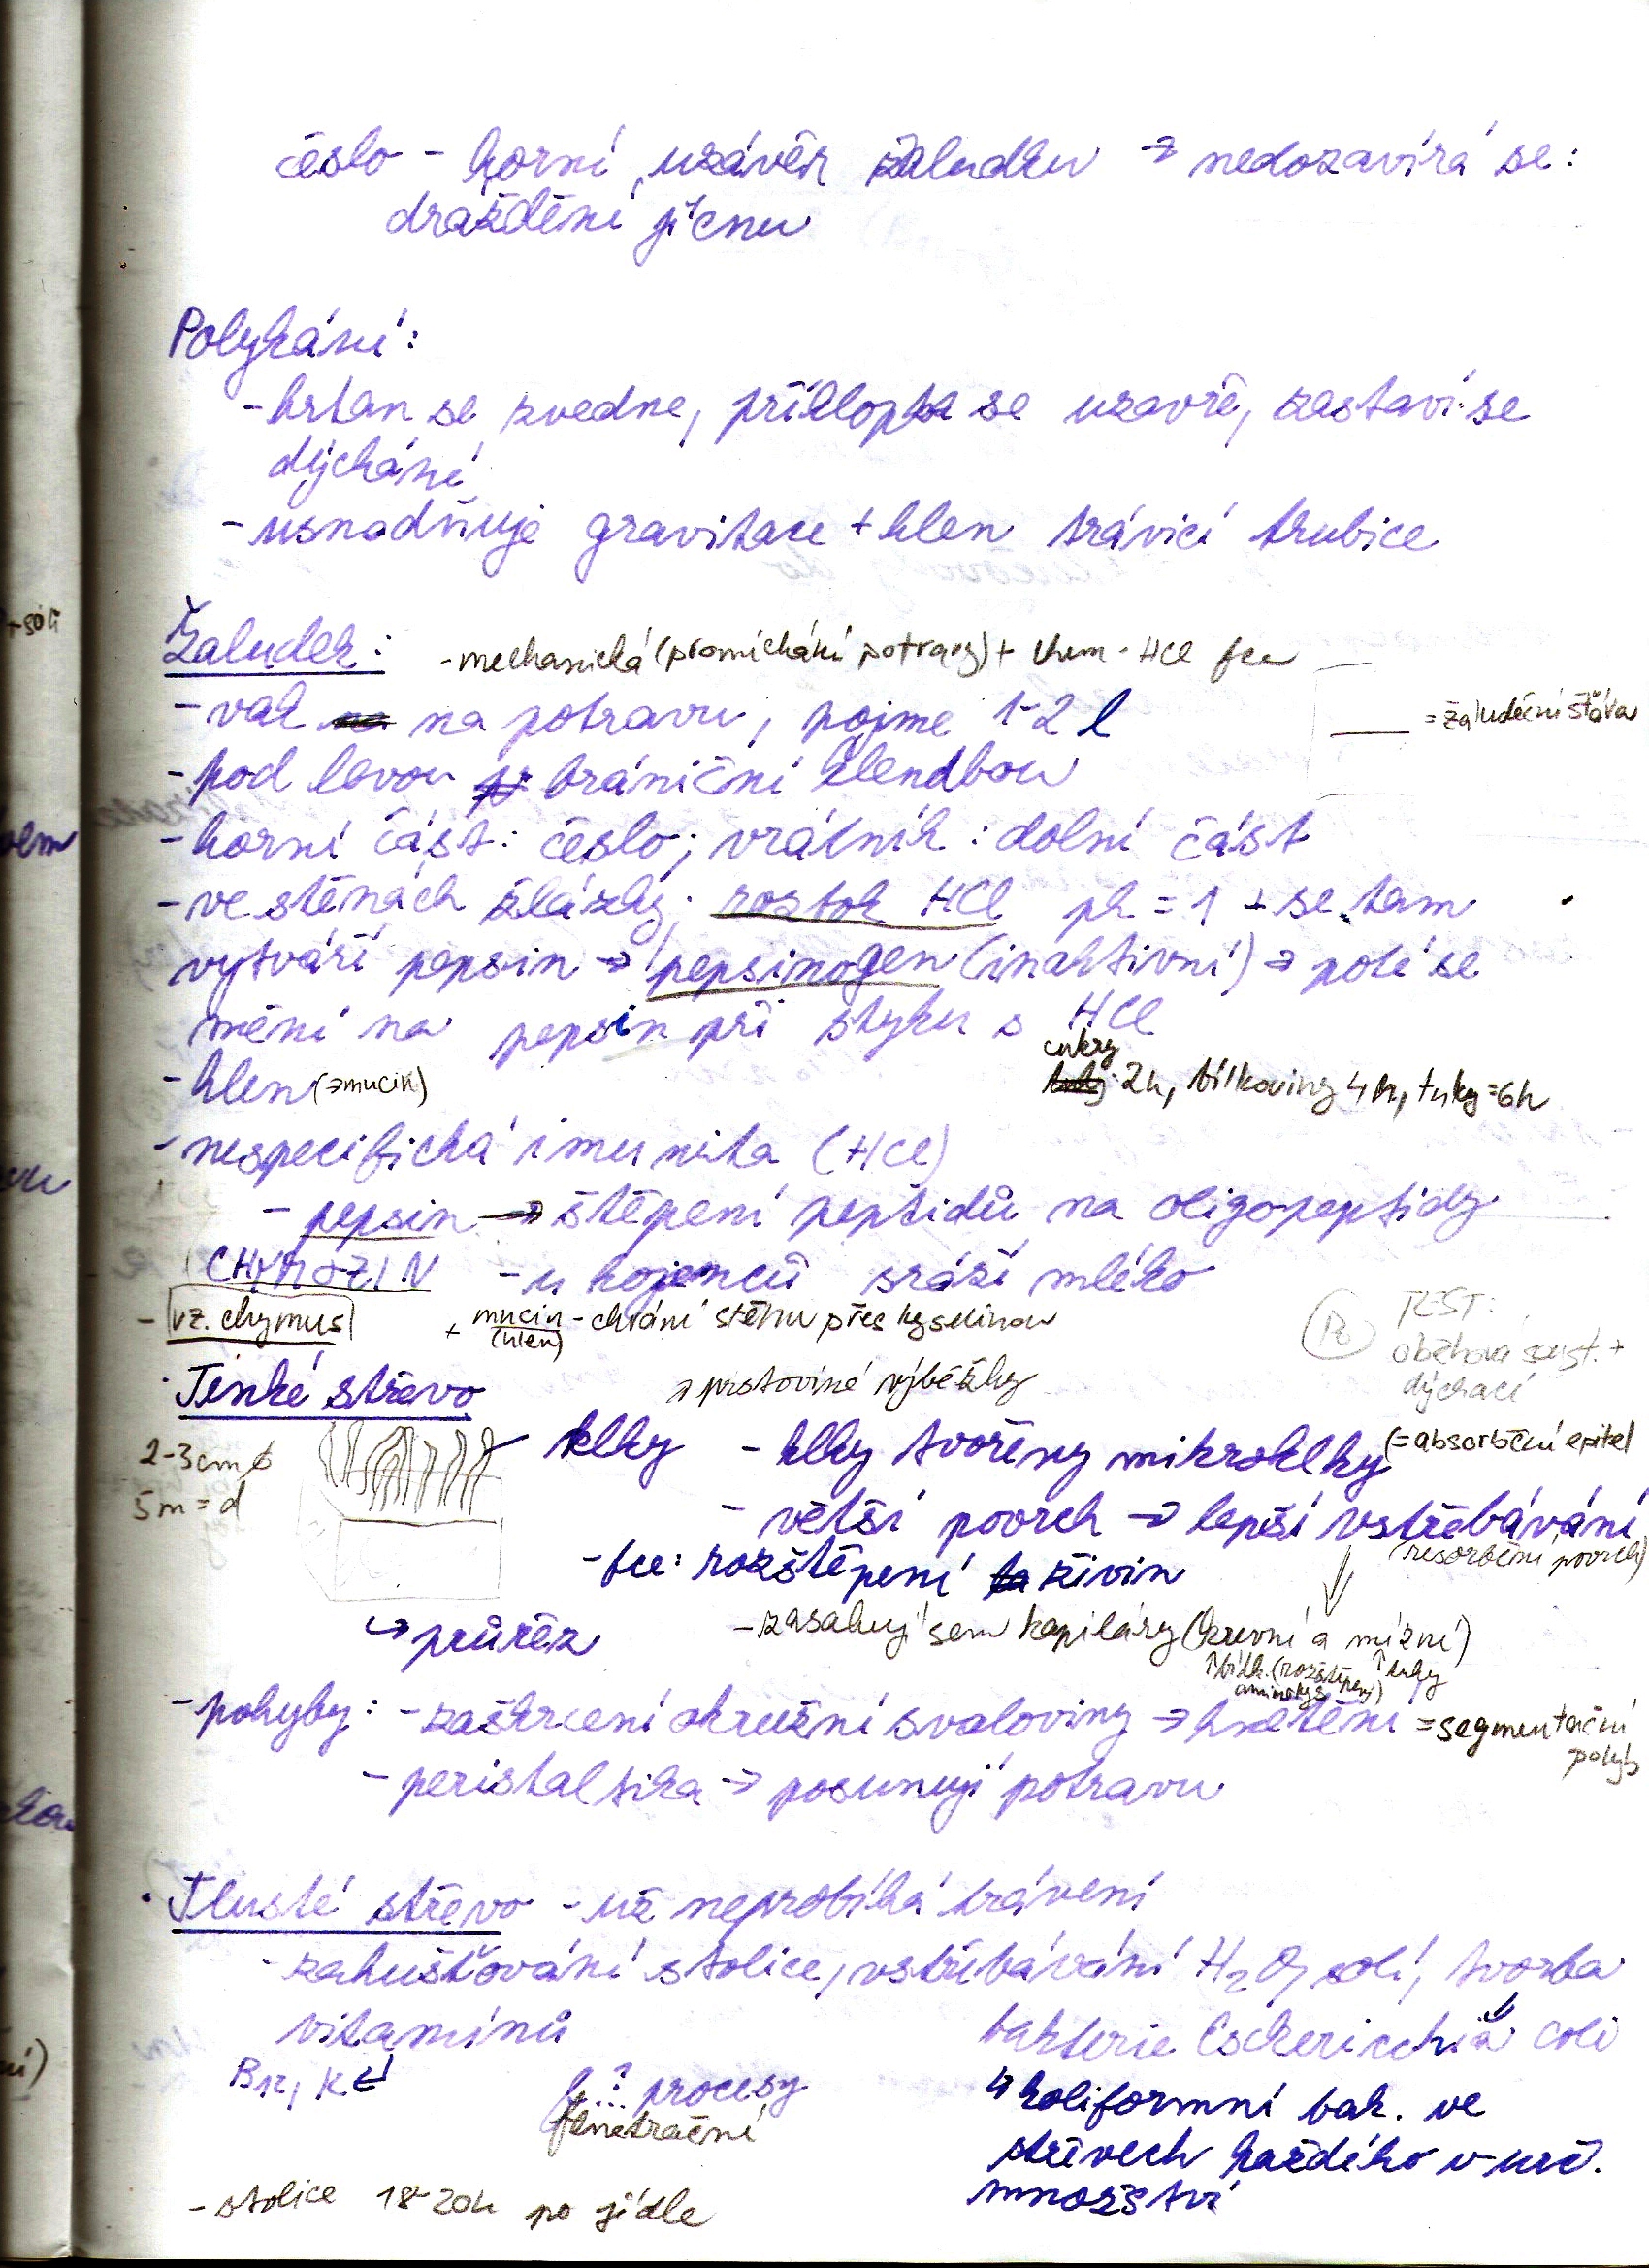 česlo - horní uzávěr žaludku → nedozavírá se:
dráždění jícnu
Polykání:
- hrtan se zvedne, příklopka se uzavře, zastaví se
dýchání
- usnadňuje gravitace + hlen trávicí trubice
Žaludek: - mechanická (promíchání potravy) + chem - HCl fce
- vak na potravu, pojme 1-2 l
= žaludeční šťáva
- pod levou brániční klenbou
- horní část: česlo; vrátník: dolní část
- ve stěnách žlázky: roztok HCl ph = 1 + se tam
vytváří pepsin → pepsinogen (inaktivní) → poté se
mění na pepsin při styku s HCl
- hlen (→mucin)
cukry 2h, bílkoviny 4h, tuky = 6h
- nespecifická imunita (HCl)
- pepsin → štěpení peptidů na oligopeptidy
CHYMOZIN - u kojenců sráží mléko
- vz. chymus
+ mucin - chrání stěnu přes kyselinou
(hlen)
TEST:
oběhová soust. +
dýchací
Tenké střevo
→ prstovité výběžky
2-3 cm ϕ
5m = d
klky - klky tvořeny mikroklky (= absorbční epitel
- větší povrch → lepší vstřebávání
(resorbční povrch)
- fce: rozštěpení živin
↳ průřez
- zasahují sem kapiláry (krevní a mízní)
↑ bílk. (rozštěpeny) ↑ tuky
aminokys.
- pohyby: - zaškrcení okružní svaloviny → hnětení = segmentační
pohyb
- peristaltika → posunují potravu
Tlusté střevo - už neprobíhá trávení
- zahušťování stolice, vstřebávání H₂O, solí, tvorba
vitamínů
bakterie Escherichia coli
B12, K
? procesy
↳ koliformní bak. ve
střevech každého v urč.
množství
- stolice 18-20h po jídle